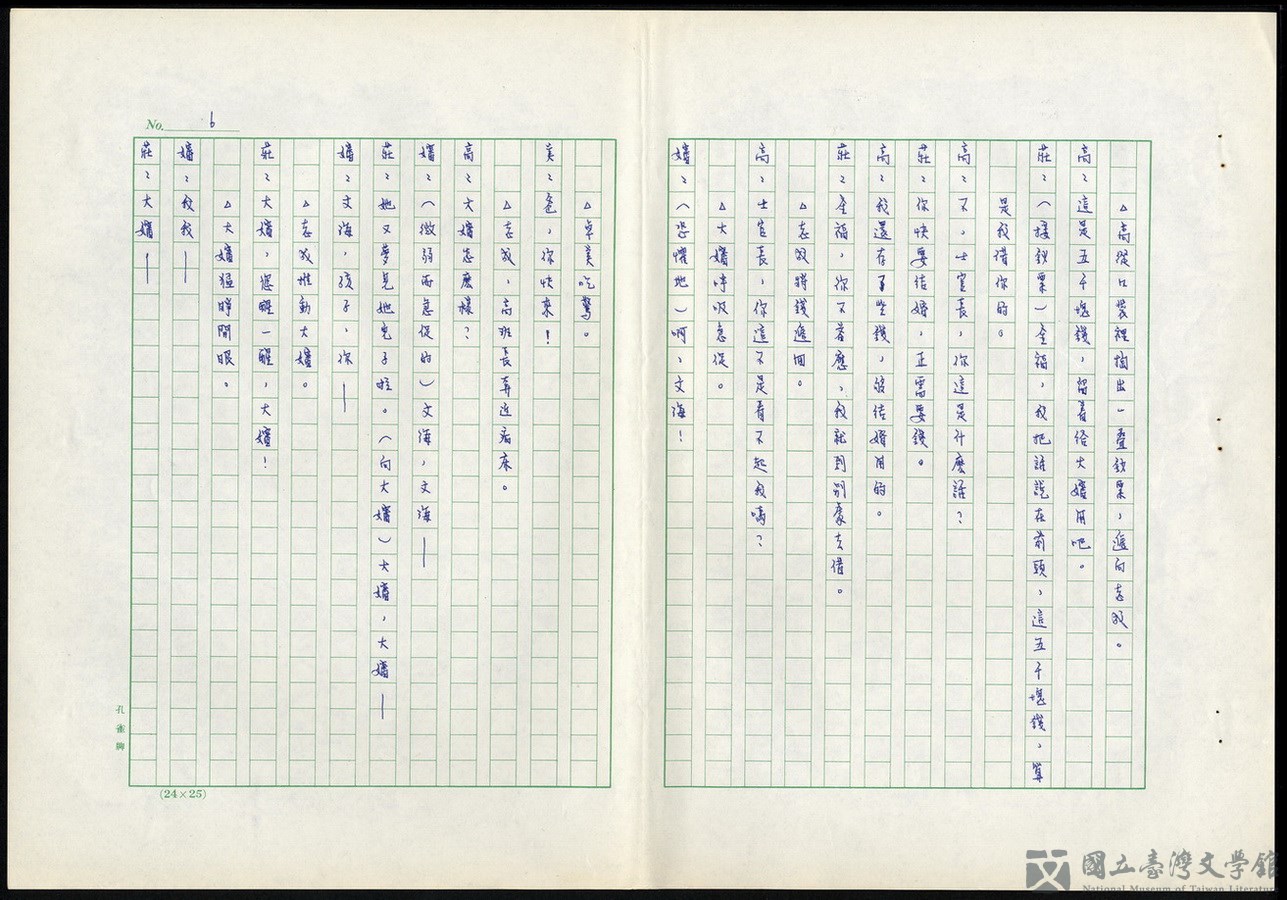 △高從口袋裡掏出一疊鈔票，遞向志毅。
高：這是五千塊錢，留着給大嬸用吧。
莊：（接鈔票）全福，我把話說在前頭，這五千塊錢，算
是我借你的。
高：不，士官長，你這是什麼話？
莊：你快要結婚，正需要錢。
高：我還存了些錢，夠結婚用的。
莊：全福，你不答應，我就到別處去借。
△志毅將錢遞回。
高：士官長，你這不是看不起我嗎？
△大嬸呼吸急促。
嬸：（恐懼地）啊，文海！
No. 6
△卓美吃驚。
美：爸，你快來！
△志毅，高班長奔近病床。
高：大嬸怎麼樣？
嬸：（微弱而急促的）文海，文海—
莊：她又夢見她兒子啦。（向大嬸）大嬸，大嬸—
嬸：文海，孩子，你—
△志毅推動大嬸。
莊：大嬸，您醒一醒，大嬸！
△大嬸猛睜開眼。
嬸：我我—
莊：大嬸—
孔雀牌
(24×25)
國立臺灣文學館
National Museum of Taiwan Literature